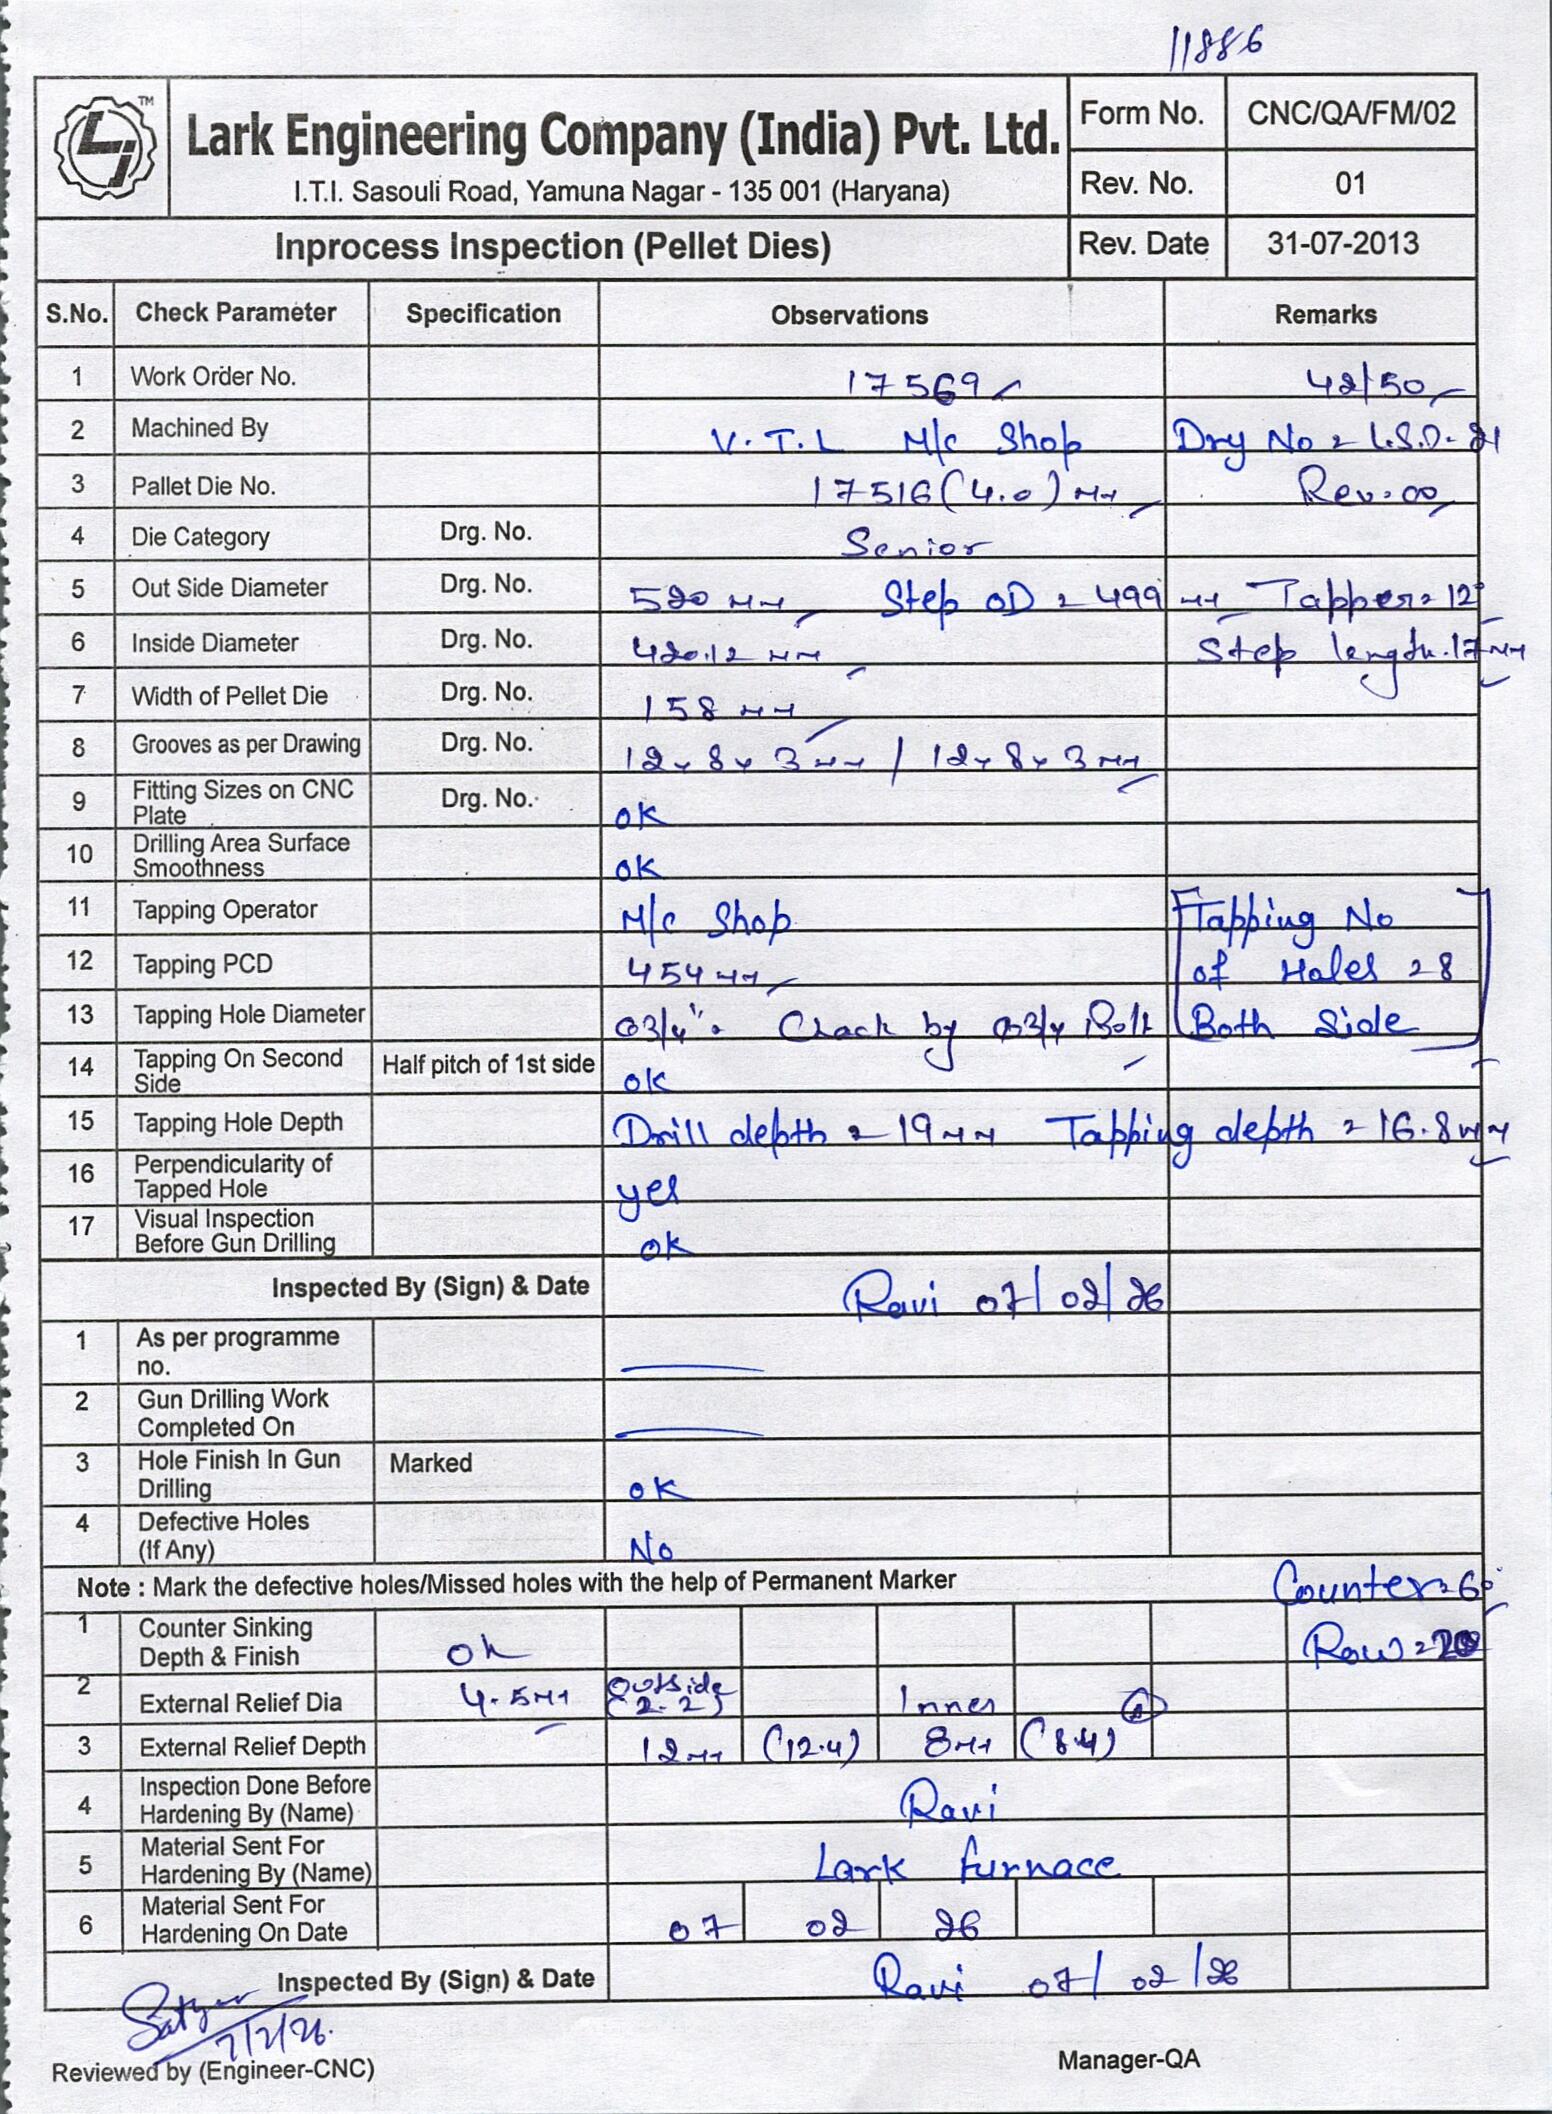 11886
TM
Lark Engineering Company (India) Pvt. Ltd.
I.T.I. Sasouli Road, Yamuna Nagar - 135 001 (Haryana)
Form No. CNC/QA/FM/02
Rev. No. 01
Inprocess Inspection (Pellet Dies) Rev. Date 31-07-2013
S.No. Check Parameter Specification Observations Remarks
1 Work Order No. 17569 42/50
2 Machined By V.T.L M/c Shop Dry No = L.S.D-21
3 Pallet Die No. 17516(4.0) mm Rev.00
4 Die Category Drg. No. Senior
5 Out Side Diameter Drg. No. 520 mm Step OD = 499 mm Tapper = 12°
6 Inside Diameter Drg. No. 420.12 mm Step length.17mm
7 Width of Pellet Die Drg. No. 158 mm
8 Grooves as per Drawing Drg. No. 12x8x3mm / 12x8x3mm
9 Fitting Sizes on CNC Plate Drg. No. ok
10 Drilling Area Surface Smoothness ok
11 Tapping Operator M/c Shop Tapping No
12 Tapping PCD 454mm of Holes = 8
13 Tapping Hole Diameter Ø3/4". Chack by Ø3/4 Bolt Both Side
14 Tapping On Second Side Half pitch of 1st side ok
15 Tapping Hole Depth Drill depth = 19mm Tapping depth = 16.8mm
16 Perpendicularity of Tapped Hole yes
17 Visual Inspection Before Gun Drilling ok
Inspected By (Sign) & Date Ravi 07/02/26
1 As per programme no.
2 Gun Drilling Work Completed On
3 Hole Finish In Gun Drilling Marked ok
4 Defective Holes (If Any) No
Note : Mark the defective holes/Missed holes with the help of Permanent Marker Counter = 60°
1 Counter Sinking Depth & Finish ok Row =
2 External Relief Dia 4.5mm Outside (2-2) Inner
3 External Relief Depth 12mm (12.4) 8mm (8.4)
4 Inspection Done Before Hardening By (Name) Ravi
5 Material Sent For Hardening By (Name) Lark furnace
6 Material Sent For Hardening On Date 07 02 26
Inspected By (Sign) & Date Ravi 07/02/26
7/2/26.
Reviewed by (Engineer-CNC) Manager-QA